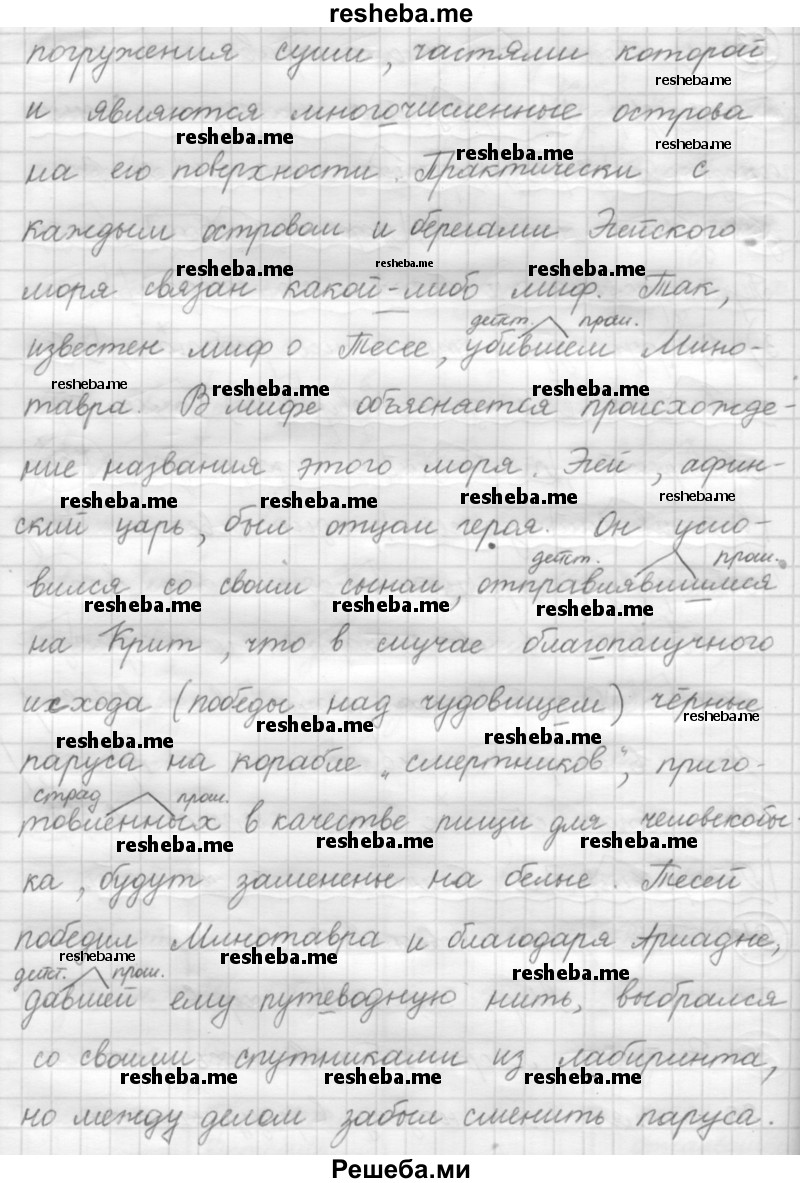 resheba.me
погружения суши, частями которой
resheba.me
и являются многочисленные острова
resheba.me
resheba.me
resheba.me
на его поверхности. Практически с
каждым островом и берегами Эгейского
resheba.me
resheba.me
resheba.me
моря связан какой-либо миф. Так,
действ. прош.
известен миф о Тесее, убившем Мино-
resheba.me
resheba.me
resheba.me
тавра. В мифе объясняется происхожде-
ние названия этого моря. Эгей, афин-
resheba.me
resheba.me
resheba.me
resheba.me
ский царь, был отцом героя. Он усло-
действ. прош.
вился со своим сыном, отправлявшимся
resheba.me
resheba.me
resheba.me
на Крит, что в случае благополучного
исхода (победы над чудовищем) чёрные
resheba.me
resheba.me
resheba.me
resheba.me
паруса на корабле „смертников“, приго-
страд прош.
товленных в качестве пищи для человекобы-
resheba.me
resheba.me
resheba.me
ка, будут заменены на белые. Тесей
победил Минотавра и благодаря Ариадне,
resheba.me
resheba.me
resheba.me
действ. прош.
давшей ему путеводную нить, выбрался
со своими спутниками из лабиринта,
resheba.me
resheba.me
resheba.me
но между делом забыл сменить паруса.
Решеба.ми